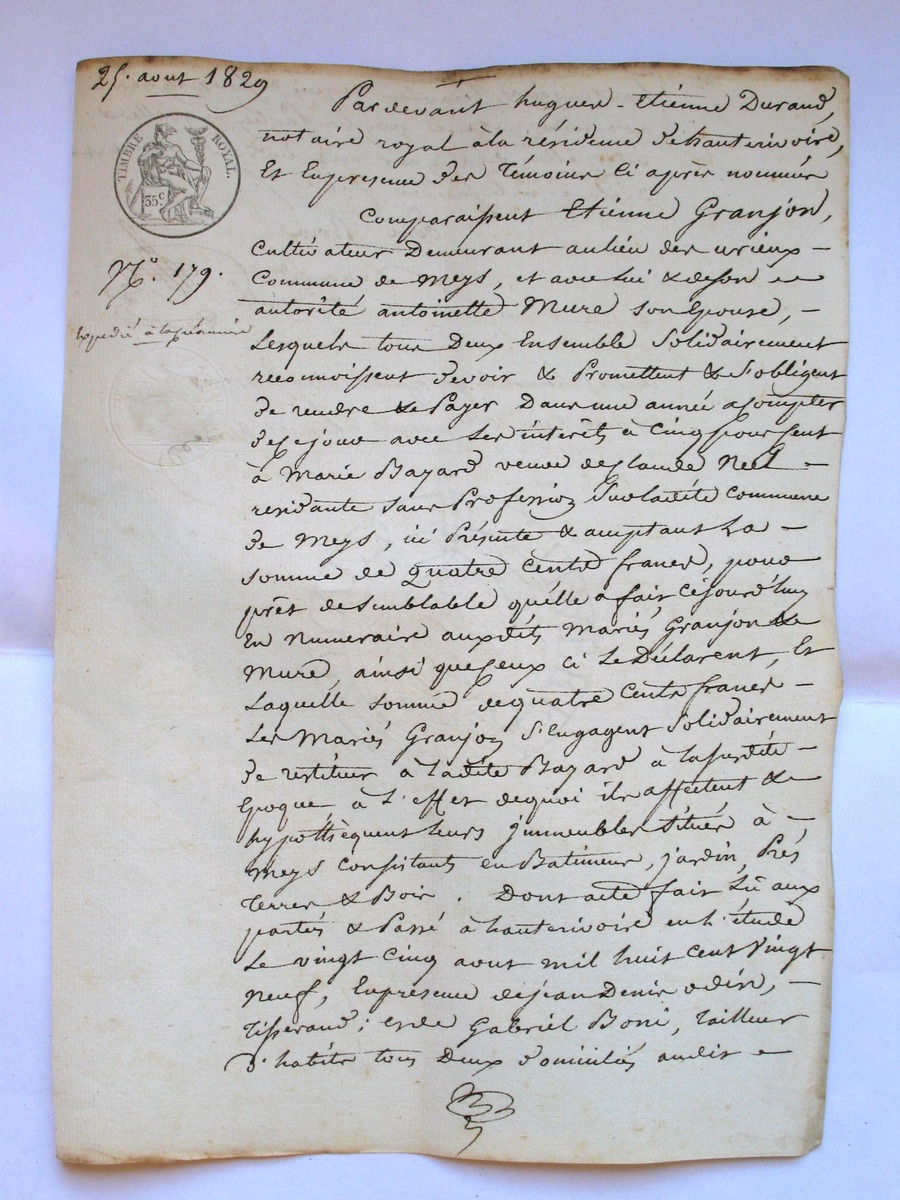 25. aout 1829
TIMBRE ROYAL.
35 c
N.o 179.
Expédié à la première
Pardevant hugues-etienne Durand,
notaire royal à la résidence de hauterivoire,
Et En presence des Témoins ci après nommés
Comparaissent Etienne Granjon,
Cultivateur Demeurant au lieu des
Commune de Meys, et avec lui & de son
autorité antoinette Mure son Epouse,
Lesquels tous Deux Ensemble Solidairement
reconnoissent devoir & Promettent & S'obligent
de rendre & Payer Dans une année a compter
de ce jour avec Les interêts à Cinq pour Cent
à Marie Bazard veuve de Claude Neel
residante sans Profession Commune
de Meys, ici Présente & acceptant La
somme de quatre Cents francs, pour
prêt de semblable qu'elle a fait Cejourd'huy
En Numeraire auxdits Mariés Granjon &
Mure, ainsi que Ceux ci Le Déclarent, Et
Laquelle somme de quatre Cents francs
Les Mariés Granjon S'Engagent Solidairement
de restituer à Ladite Bazard à La susdite
Epoque à l'effet dequoi ils affectent &
hypothèquent Leurs jmmeubles Situés à
Meys Consistants en Batiments, jardin, Prés
Terres & Bois. Dont acte fait Lû aux
parties & Passé à hauterivoire en L'étude
Le vingt Cinq aout mil huit Cent Vingt
Neuf, En presence de jean Denis odin,
Tisserand; et de Gabriel Boni, Tailleur
D'habits tous Deux domiciliés audit